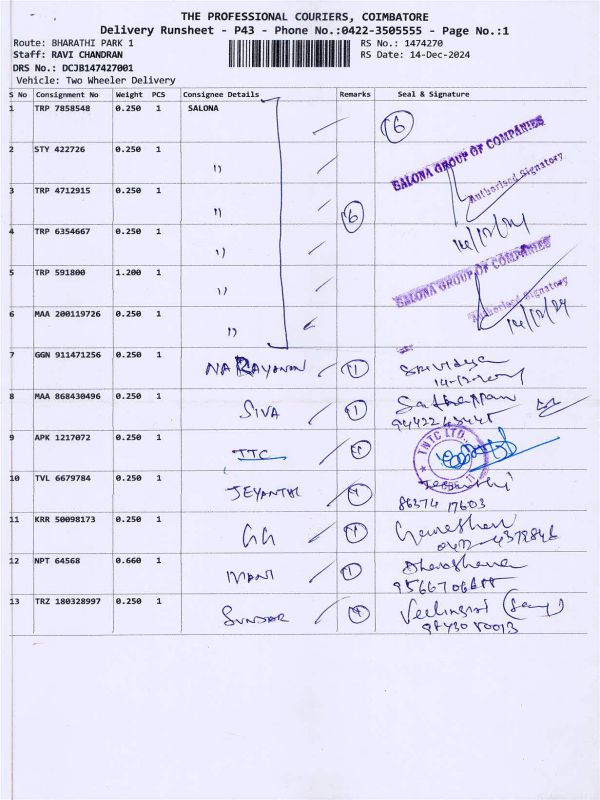 THE PROFESSIONAL COURIERS, COIMBATORE
Delivery Runsheet - P43 - Phone No.:0422-3505555 - Page No.:1
Route: BHARATHI PARK 1 RS No.: 1474270
Staff: RAVI CHANDRAN RS Date: 14-Dec-2024
DRS No.: DCJB147427001
Vehicle: Two Wheeler Delivery
S No Consignment No Weight PCS Consignee Details Remarks Seal & Signature
1 TRP 7858548 0.250 1 SALONA 6
SALONA GROUP OF COMPANIES
2 STY 422726 0.250 1 "
Authorised Signatory
3 TRP 4712915 0.250 1 " 6
14/12/24
4 TRP 6354667 0.250 1 "
SALONA GROUP OF COMPANIES
5 TRP 591800 1.200 1 "
Authorised Signatory
14/12/24
6 MAA 200119726 0.250 1 "
7 GGN 911471256 0.250 1 NARAYANAN 1 Srividya
8 MAA 868430496 0.250 1 SIVA 1
9 APK 1217072 0.250 1 TTC 1 TNTC LTD.,
10 TVL 6679784 0.250 1 JEYANTHI 1
86374 17603
11 KRR 50098173 0.250 1 GG 1 Ganeshan
12 NPT 64568 0.660 1 MANI 1
13 TRZ 180328997 0.250 1 SUNDAR 1